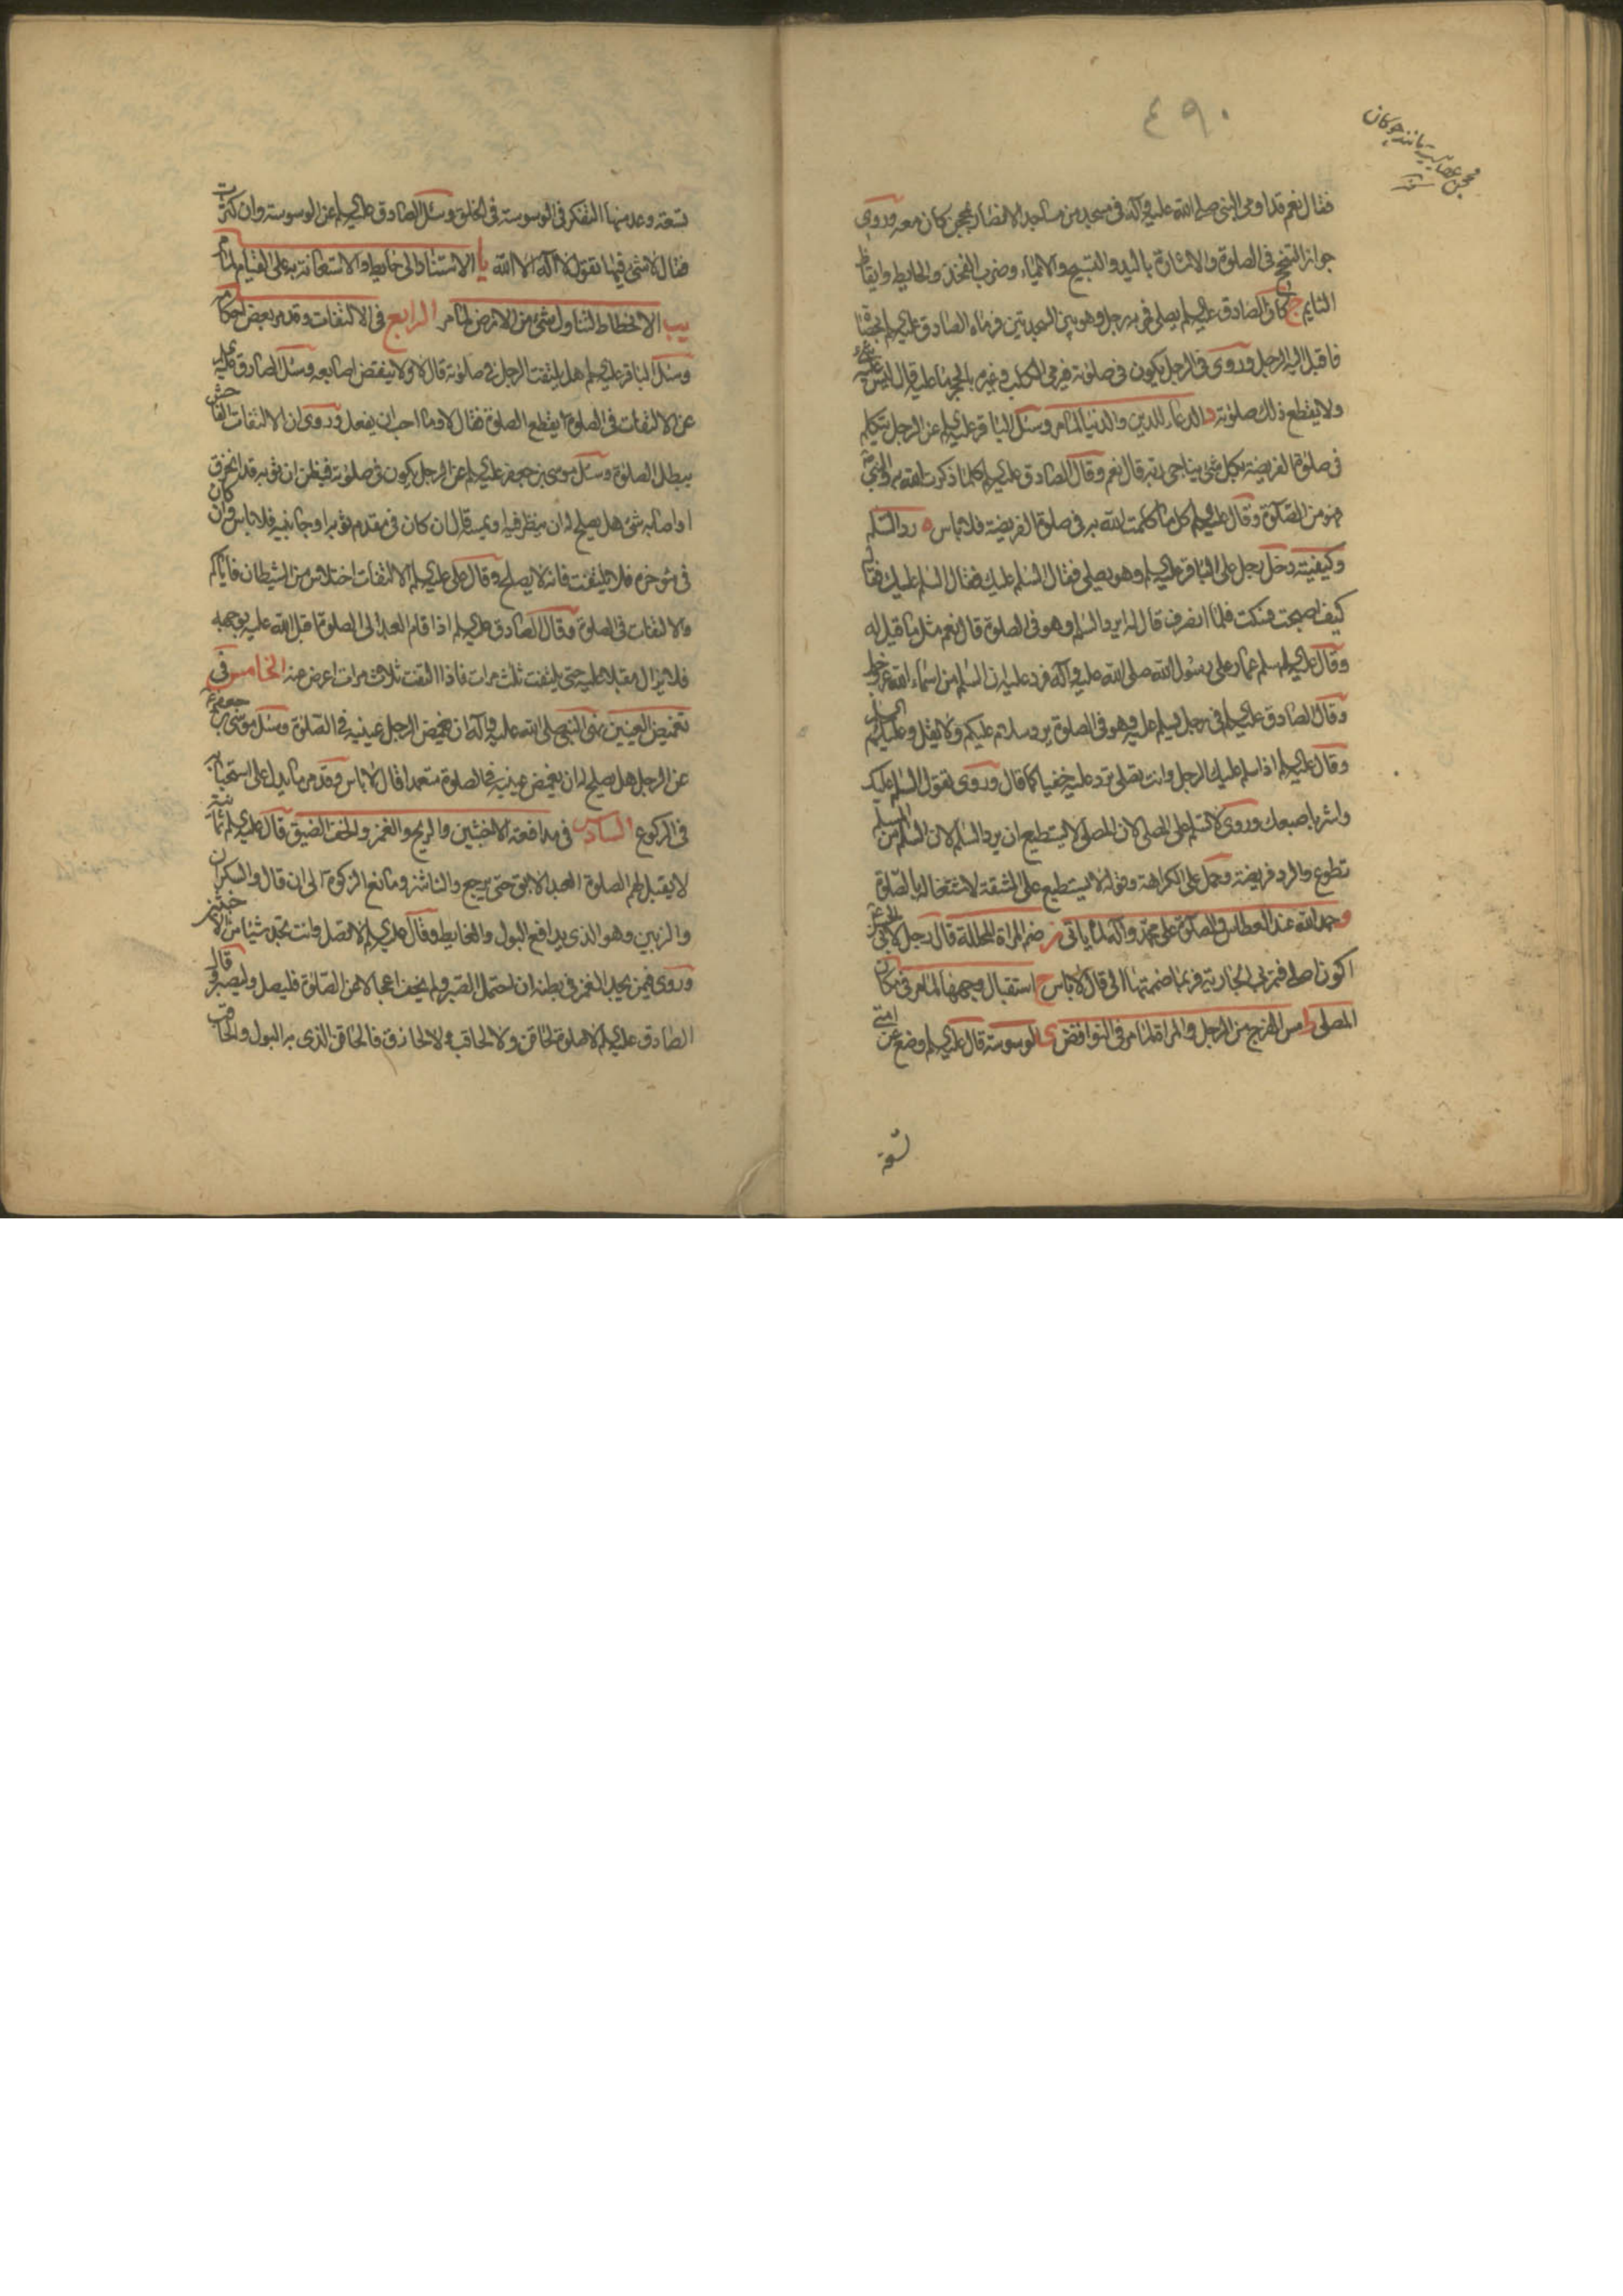 ٤٩٠
محجن عصاييست مانند چوكان
فقال نعم قد اومى النبى صلى الله عليه وآله فى مسجد من مساجد الانصار بمحجن كان معه وروى
جواز التنحنح فى الصلوة والاشارة باليد والتسبيح والايماء وضرب الفخذ والحايط وايقاظ
النايم ج كان الصادق عليه السلم يصلى فمر به رجل وهو بين السجدتين فرماه الصادق عليه السلم بحصاة
فاقبل اليه الرجل وروى فى الرجل يكون فى صلوته فيرمى الكلب وغيره بالحجر ما عليه قال ليس عليه شىء
ولا يقطع ذلك صلوته د الدعاء للدين والدنيا لما مر وسئل الباقر عليه السلم عن الرجل يتكلم
فى صلوة الفريضة بكل شئ يناجى ربه قال نعم وقال الصادق عليه السلم كلما ذكرت الله به والنبى
فهو من الصلوة وقال عليه السلم كل ما كلمت الله به فى صلوة الفريضة فلا باس ه رد السلم
وكيفيته دخل رجل على الباقر عليه السلم وهو يصلى فقال السلم عليك فقال السلم عليك فقال
كيف اصبحت فسكت فلما انصرف قال له ايرد السلم وهو فى الصلوة قال نعم مثل ما قيل له
وقال عليه السلم سلم عمار على رسول الله صلى الله عليه وآله فرد عليه ان السلم من اسماء الله عز وجل
وقال الصادق عليه السلم فى رجل يسلم عليه وهو فى الصلوة يرد سلام عليكم ولا يقل وعليكم السلم
وقال عليه السلم اذا سلم عليك الرجل وانت تصلى ترد عليه خفيا كما قال وروى تقول السلم عليك
واشر باصبعك وروى لا تسلم على المصلى لان المصلى لا يستطيع ان يرد السلم لان السلم من المسلم
تطوع والرد فريضة وحمل على الكراهة وقوله لا يستطيع على المشقة لاشتغاله بالصلوة
و حمد الله عند العطاس والصلوة على محمد وآله لما ياتى ز ضم المراة المحللة قال رجل لابى الحسن
اكون اصلى فتمر بى الجارية فربما ضممتها الى قال لا باس ح استقبال وجهها لما مر فى مكان
المصلى ط مس الفرج من الرجل والمراة لما مر فى النواقض ى الوسوسة قال عليه السلم وضع عن امتى
تسعة
تسعة وعد منها التفكر فى الوسوسة فى الخلق وسئل الصادق عليه السلم عن الوسوسة وان كثرت
فقال لا شئ فيها تقول لا اله الا الله يا الاستناد الى حايط والاستعانة به على القيام لما مر
يب الانحطاط لتناول شئ من الارض لما مر الرابع فى الالتفات وقد مر بعض احكامه
وسئل الباقر عليه السلم هل يلتفت الرجل فى صلوته قال لا ولا ينقض اصابعه وسئل الصادق عليه
عن الالتفات فى الصلوة ايقطع الصلوة فقال لا وما احب ان يفعل وروى ان الالتفات الفاحش
يبطل الصلوة وسئل موسى بن جعفر عليه السلم عن الرجل يكون فى صلوته فيظن ان ثوبه قد انخرق
او اصابه شئ هل يصلح له ان ينظر فيه او يمسه قال ان كان فى مقدم ثوبه او جانبيه فلا باس وان كان
فى مؤخره فلا يلتفت فانه لا يصلح وقال على عليه السلم الالتفات اختلاس من الشيطان فاياكم
والالتفات فى الصلوة وقال الصادق عليه السلم اذا قام العبد الى الصلوة اقبل الله عليه بوجهه
فلا يزال مقبلا عليه حتى يلتفت ثلث مرات فاذا التفت ثلاث مرات اعرض عنه الخامس فى
تغميض العينين نهى النبى صلى الله عليه وآله ان يغمض الرجل عينيه فى الصلوة وسئل موسى بن جعفر
عن الرجل هل يصلح له ان يغمض عينيه فى الصلوة متعمدا قال لا باس وقد مر ما يدل على استحبابه
فى الركوع السادس فى مدافعة الاخبثين والريح والغمز والخف الضيق قال عليه السلم ثمانية
لا يقبل لهم الصلوة العبد الابق حتى يرجع والناشز ومانع الزكوة الى ان قال والسكران
والزبين وهو الذى يدافع البول والغايط وقال عليه السلم لا تصل وانت تجد شيئا من الاخبثين
وروى فيمن يجد الغمز فى بطنه ان احتمل الصبر ولم يخف اعجالا عن الصلوة فليصل وليصبر وقال
الصادق عليه السلم لا صلوة لحاقن ولا لحاقب ولا لحازق فالحاقن الذى به البول والحاقب